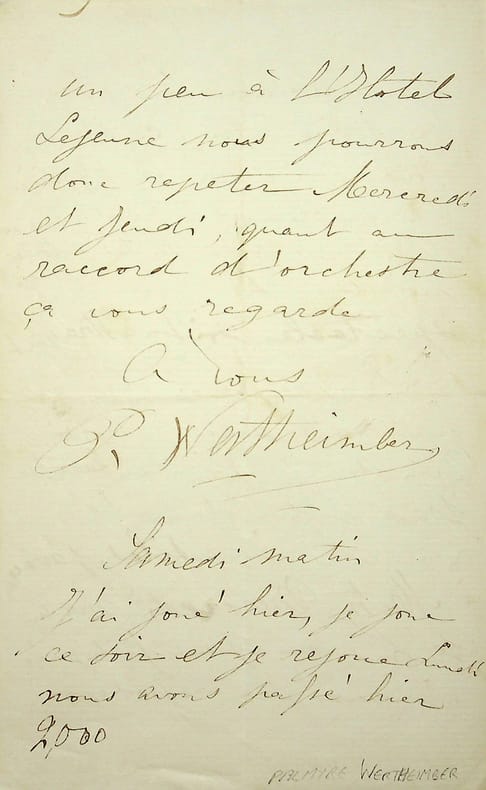 un peu à l'Hotel
Lejeune nous pourrons
donc repeter Mercredi
et Jeudi, quant au
raccord d'orchestre
ça vous regarde
A vous
P. Wertheimber
Samedi matin
J'ai joué hier, je joue
ce soir et je rejoue Lundi
nous avons passé hier
2,000
PALMYRE WERTHEIMBER